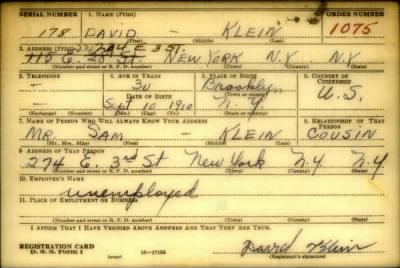 SERIAL NUMBER 1. NAME (Print) ORDER NUMBER
178 DAVID - KLEIN 1075
(First) (Middle) (Last)
2. ADDRESS (Print) 274 E 3 St.
115 E. 28 St. NEW YORK N.Y. N.Y
(Number and street or R. F. D. number) (Town) (County) (State)
3. TELEPHONE 4. AGE IN YEARS 5. PLACE OF BIRTH 6. COUNTRY OF CITIZENSHIP
- 30 Brooklyn
DATE OF BIRTH (Town or county) U.S.
- Sept 10 1910 N.Y.
(Exchange) (Number) (Mo.) (Day) (Yr.) (State or country)
7. NAME OF PERSON WHO WILL ALWAYS KNOW YOUR ADDRESS 8. RELATIONSHIP OF THAT PERSON
MR. SAM - KLEIN COUSIN
(Mr., Mrs., Miss) (First) (Middle) (Last)
9. ADDRESS OF THAT PERSON
274 E. 3rd St New York N.Y N.Y
(Number and street or R. F. D. number) (Town) (County) (State)
10. EMPLOYER'S NAME
unemployed
11. PLACE OF EMPLOYMENT OR BUSINESS
(Number and street or R. F. D. number) (Town) (County) (State)
I AFFIRM THAT I HAVE VERIFIED ABOVE ANSWERS AND THAT THEY ARE TRUE.
REGISTRATION CARD
D. S. S. Form 1 16-17105 David Klein
(Registrant's signature)